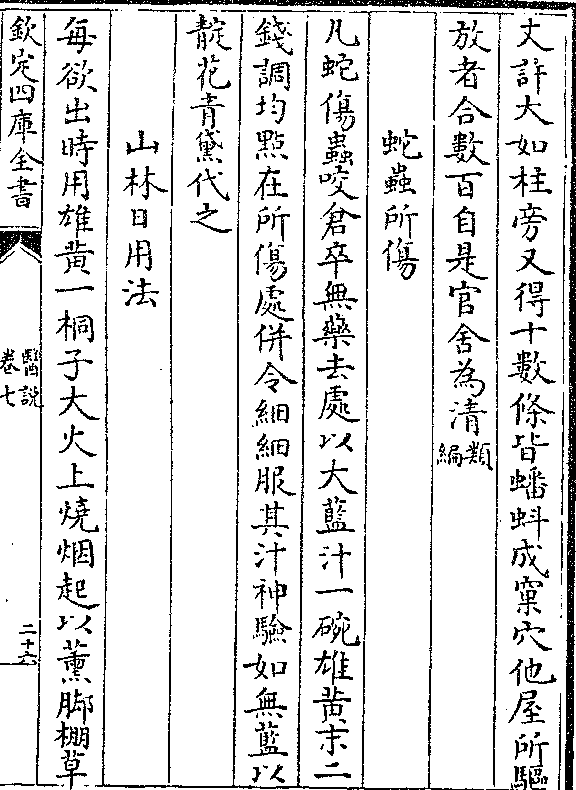 丈許大如柱旁又得十數條皆蟠蚪成窠穴他屋所驅
放者合數百自是官舍為清類編
蛇蟲所傷
凡蛇傷蟲咬倉卒無藥去處以大藍汁一碗雄黄末二
錢調均點在所傷處併令細細服其汁神驗如無藍以
靛花青黛代之
山林日用法
每欲出時用雄黄一桐子大火上燒烟起以薰脚棚草
欽定四庫全書
醫說
卷七
二十六